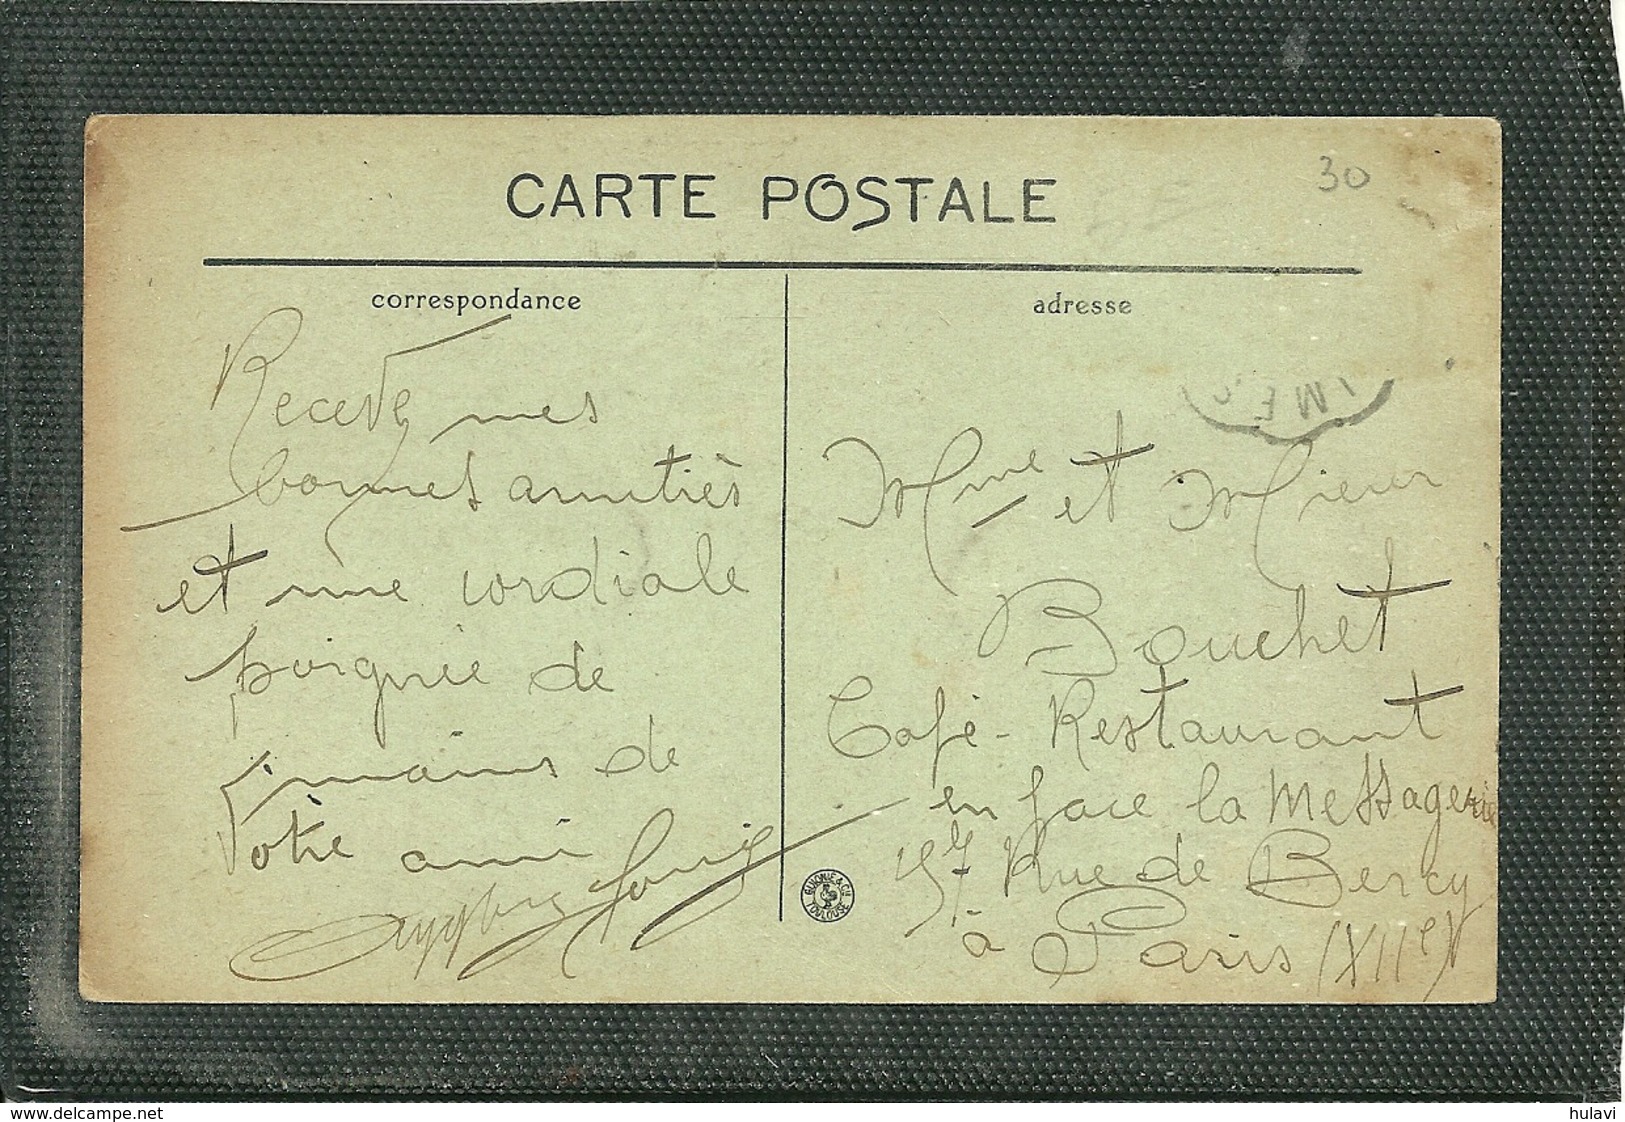 CARTE POSTALE
30
correspondance
Recevez mes
bonnes amitiés
et une cordiale
poignée de
mains de
Votre ami
adresse
Mme et Msieur
Bouchet
Café-Restaurant
en face la Messagerie
Rue de Bercy
à Paris (XIIe)
GUIONIE & CIE TOULOUSE
www.delcampe.net
hulavi